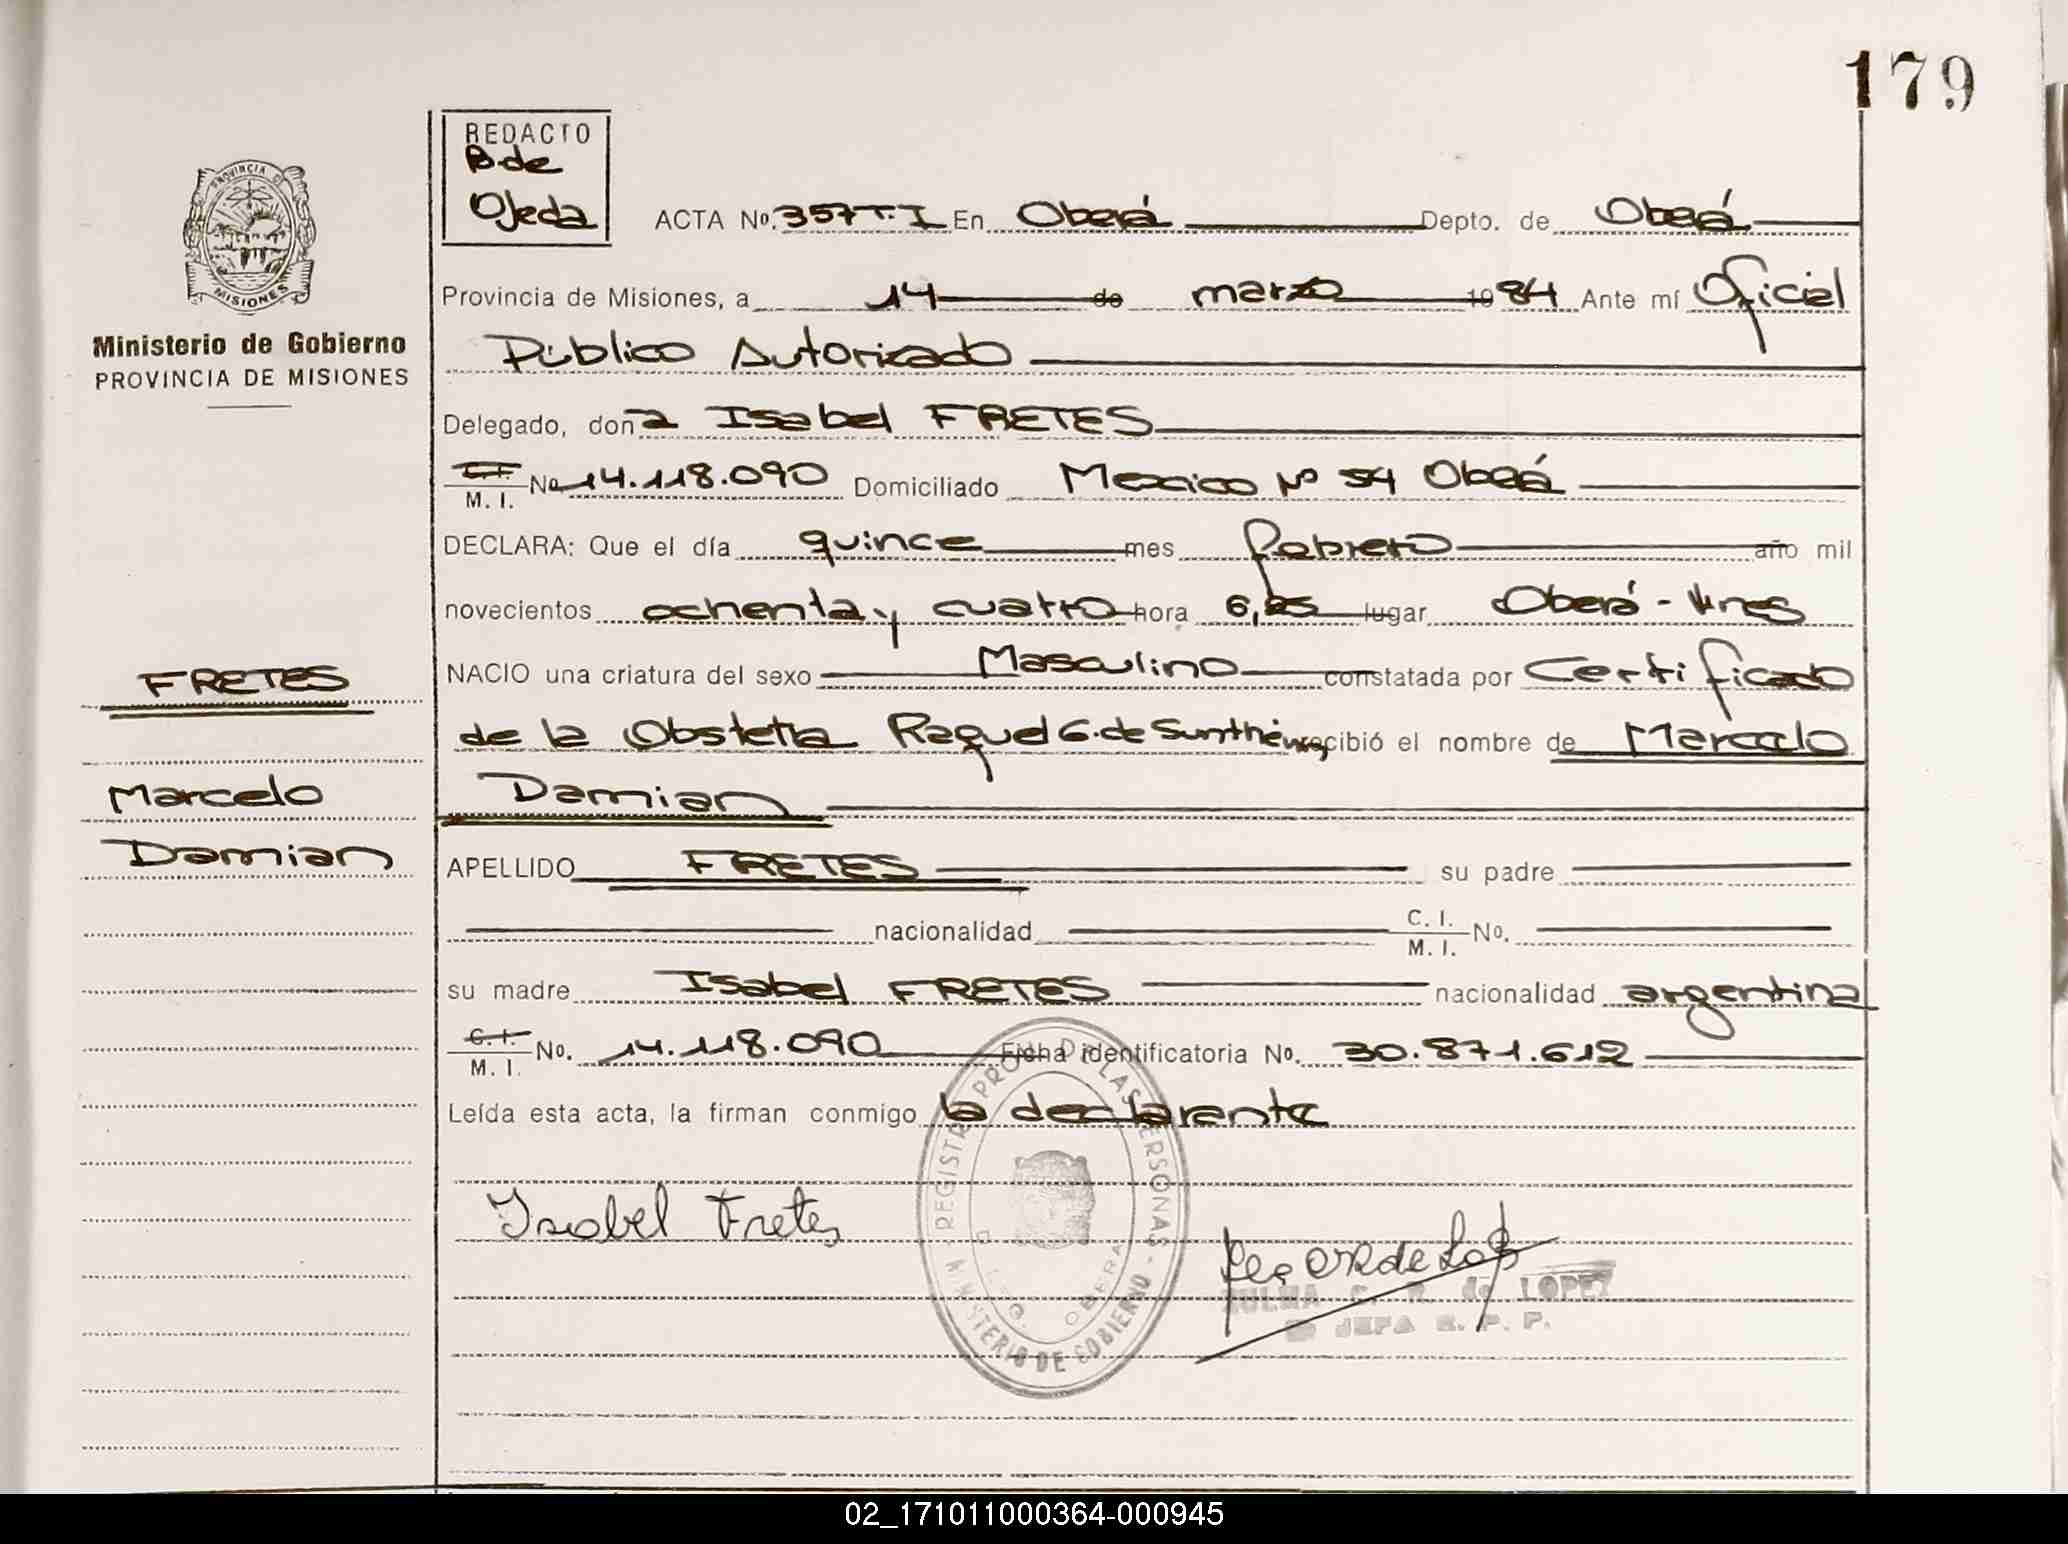 179
REDACTO
B. de
Ojeda
PROVINCIA DE
MISIONES
Ministerio de Gobierno
PROVINCIA DE MISIONES
ACTA No. 357 T. I En Oberá Depto. de Oberá
Provincia de Misiones, a 14 de marzo 1984 Ante mí Oficial
Público Autorizado
Delegado, don a Isabel FRETES
C.I. M. I. No. 14.118.090 Domiciliado Mexico Nº 54 Oberá
DECLARA: Que el día quince mes febrero año mil
novecientos ochenta y cuatro hora 6,25 lugar Oberá - Mnes
NACIO una criatura del sexo Masculino constatada por Certificado
de la Obstetra Raquel G. de recibió el nombre de Marcelo
Damian
FRETES
Marcelo
Damian
APELLIDO FRETES su padre
nacionalidad C. I. M. I. No.
su madre Isabel FRETES nacionalidad argentina
C. I. M. I. No. 14.118.090 Ficha identificatoria No. 30.871.612
Leída esta acta, la firman conmigo la declarante
Isabel Fretes
REGISTRO PROV. DE LAS PERSONAS
MINISTERIO DE GOBIERNO
OBERA
C. R. de LOPEZ
JEFA R. P. P.
02_171011000364-000945